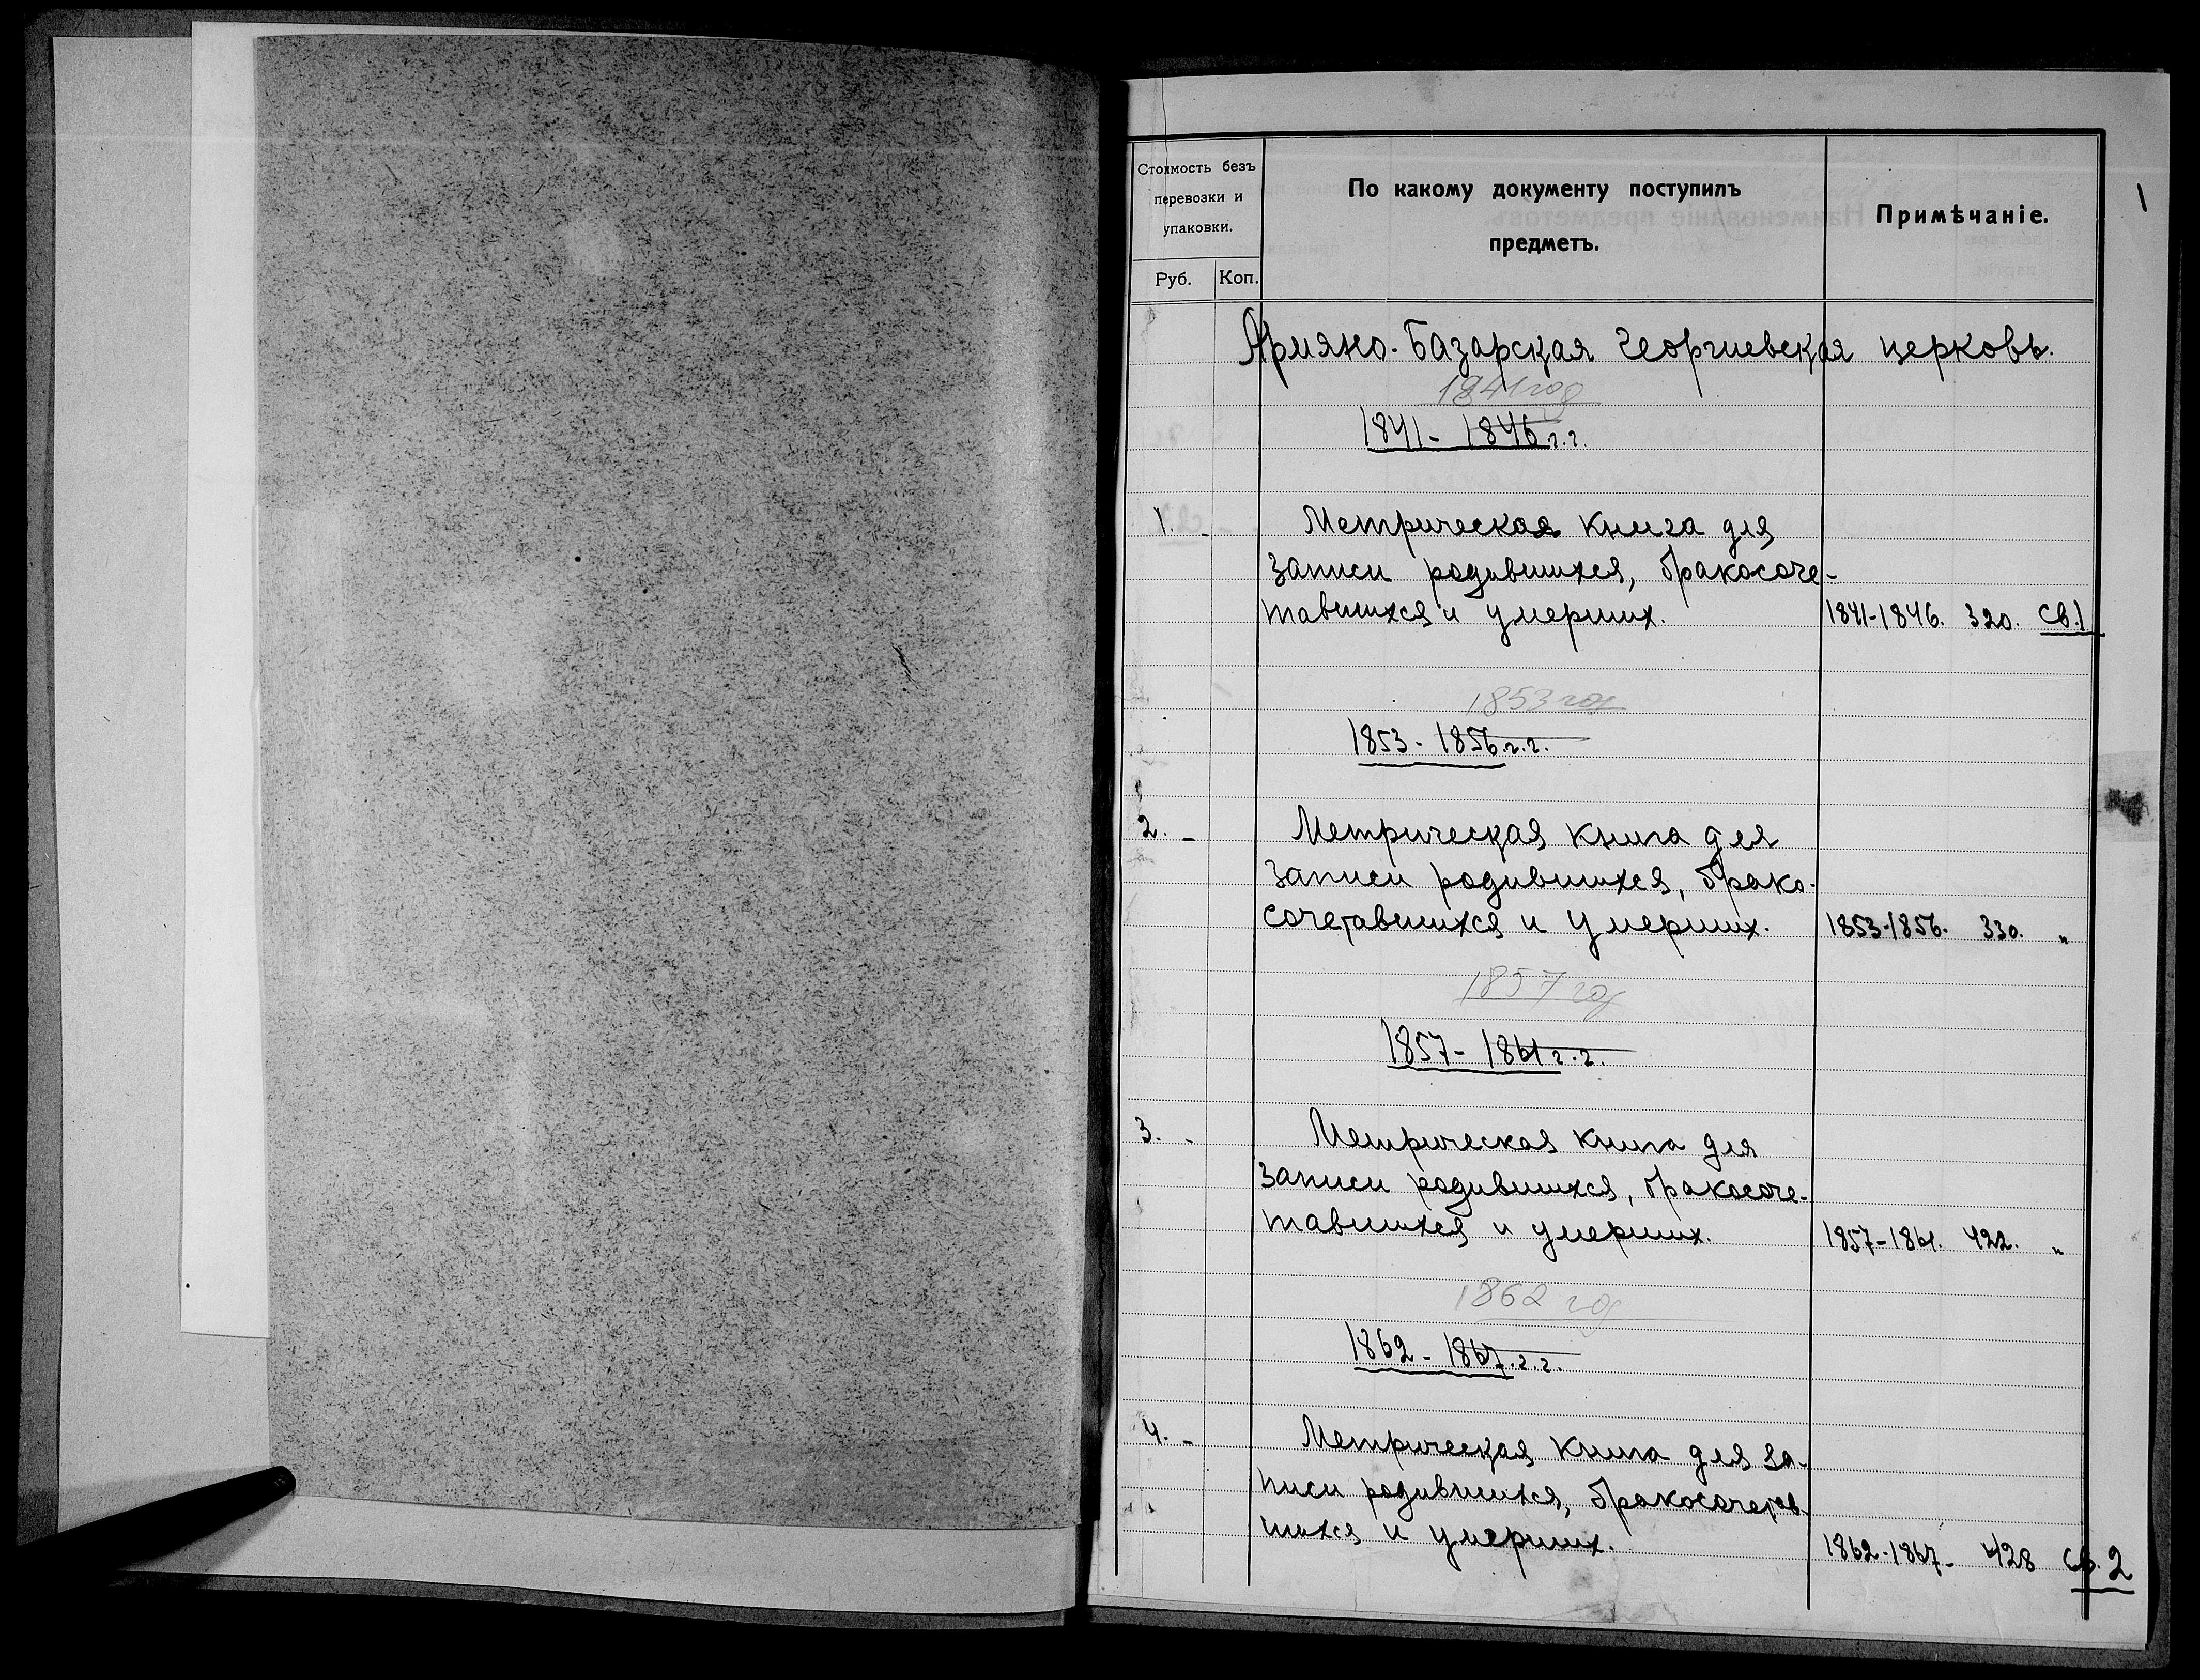 1
Стоимость безъ
перевозки и
упаковки.
Руб. Коп.
По какому документу поступилъ
предметъ.
Примѣчаніе.
Армяно-Базарская Георгиевская церковь.
1841 год
1841 - 1846 г.г.
1. - Метрическая книга для
записи родившихся, бракосоче-
тавшихся и умерших. 1841-1846. 320. св.1
1853 год
1853 - 1856 г.г.
2. - Метрическая книга для
записи родившихся, брако-
сочетавшихся и умерших. 1853-1856. 330. "
1857 год
1857 - 1861 г.г.
3. - Метрическая книга для
записи родившихся, бракосоче-
тавшихся и умерших. 1857-1861. 422. "
1862 год
1862 - 1867 г.г.
4. - Метрическая книга для за-
писи родившихся, бракосочетав-
шихся и умерших. 1862-1867- 428 св. 2